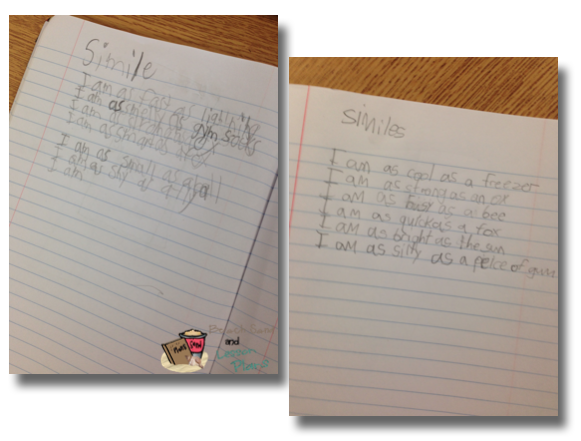 Simile
I am as fast as lightning
I am as smelly as gym socks
I am as
I am as strong as
I am as small as a ball
I am as sly as a
I am
and
Similes
I am as cool as a freezer
I am as strong as an ox
I am as busy as a bee
I am as quick as a fox
I am as bright as the sun
I am as silly as a peice of gum